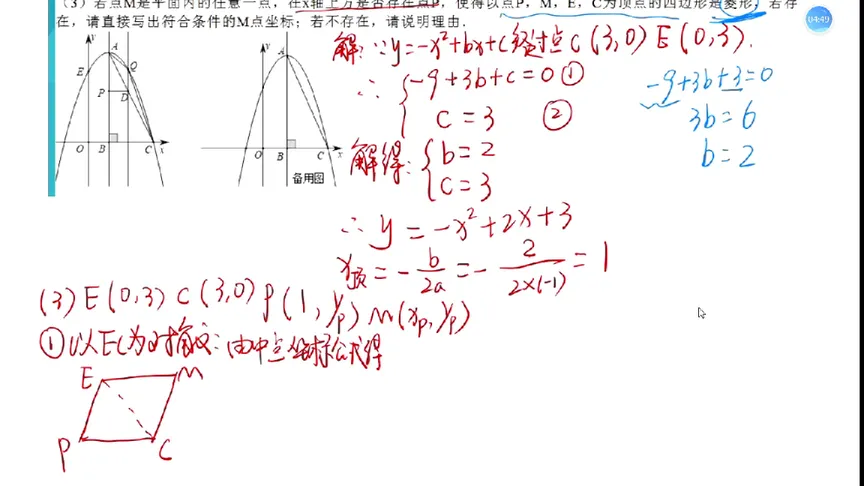 (3) 若点M是平面内的任意一点，在x轴上方是否存在点P，使得以点P，M，E，C为顶点的四边形是菱形，若存
在，请直接写出符合条件的M点坐标；若不存在，请说明理由.
04:49
解:∵y=-x²+bx+c经过点C(3,0) E(0,3).
∴ { -9+3b+c=0 ①
c=3 ②
-9+3b+3=0
3b=6
b=2
解得: { b=2
c=3
∴ y=-x²+2x+3
x顶=-b/2a=-2/2×(-1)=1
y A E Q P D O B C x
y A O B C x
备用图
(3) E(0,3) C(3,0) P(1,yp) M(xp,yp)
①以EC为对角线:由中点坐标公式得
E M
P C